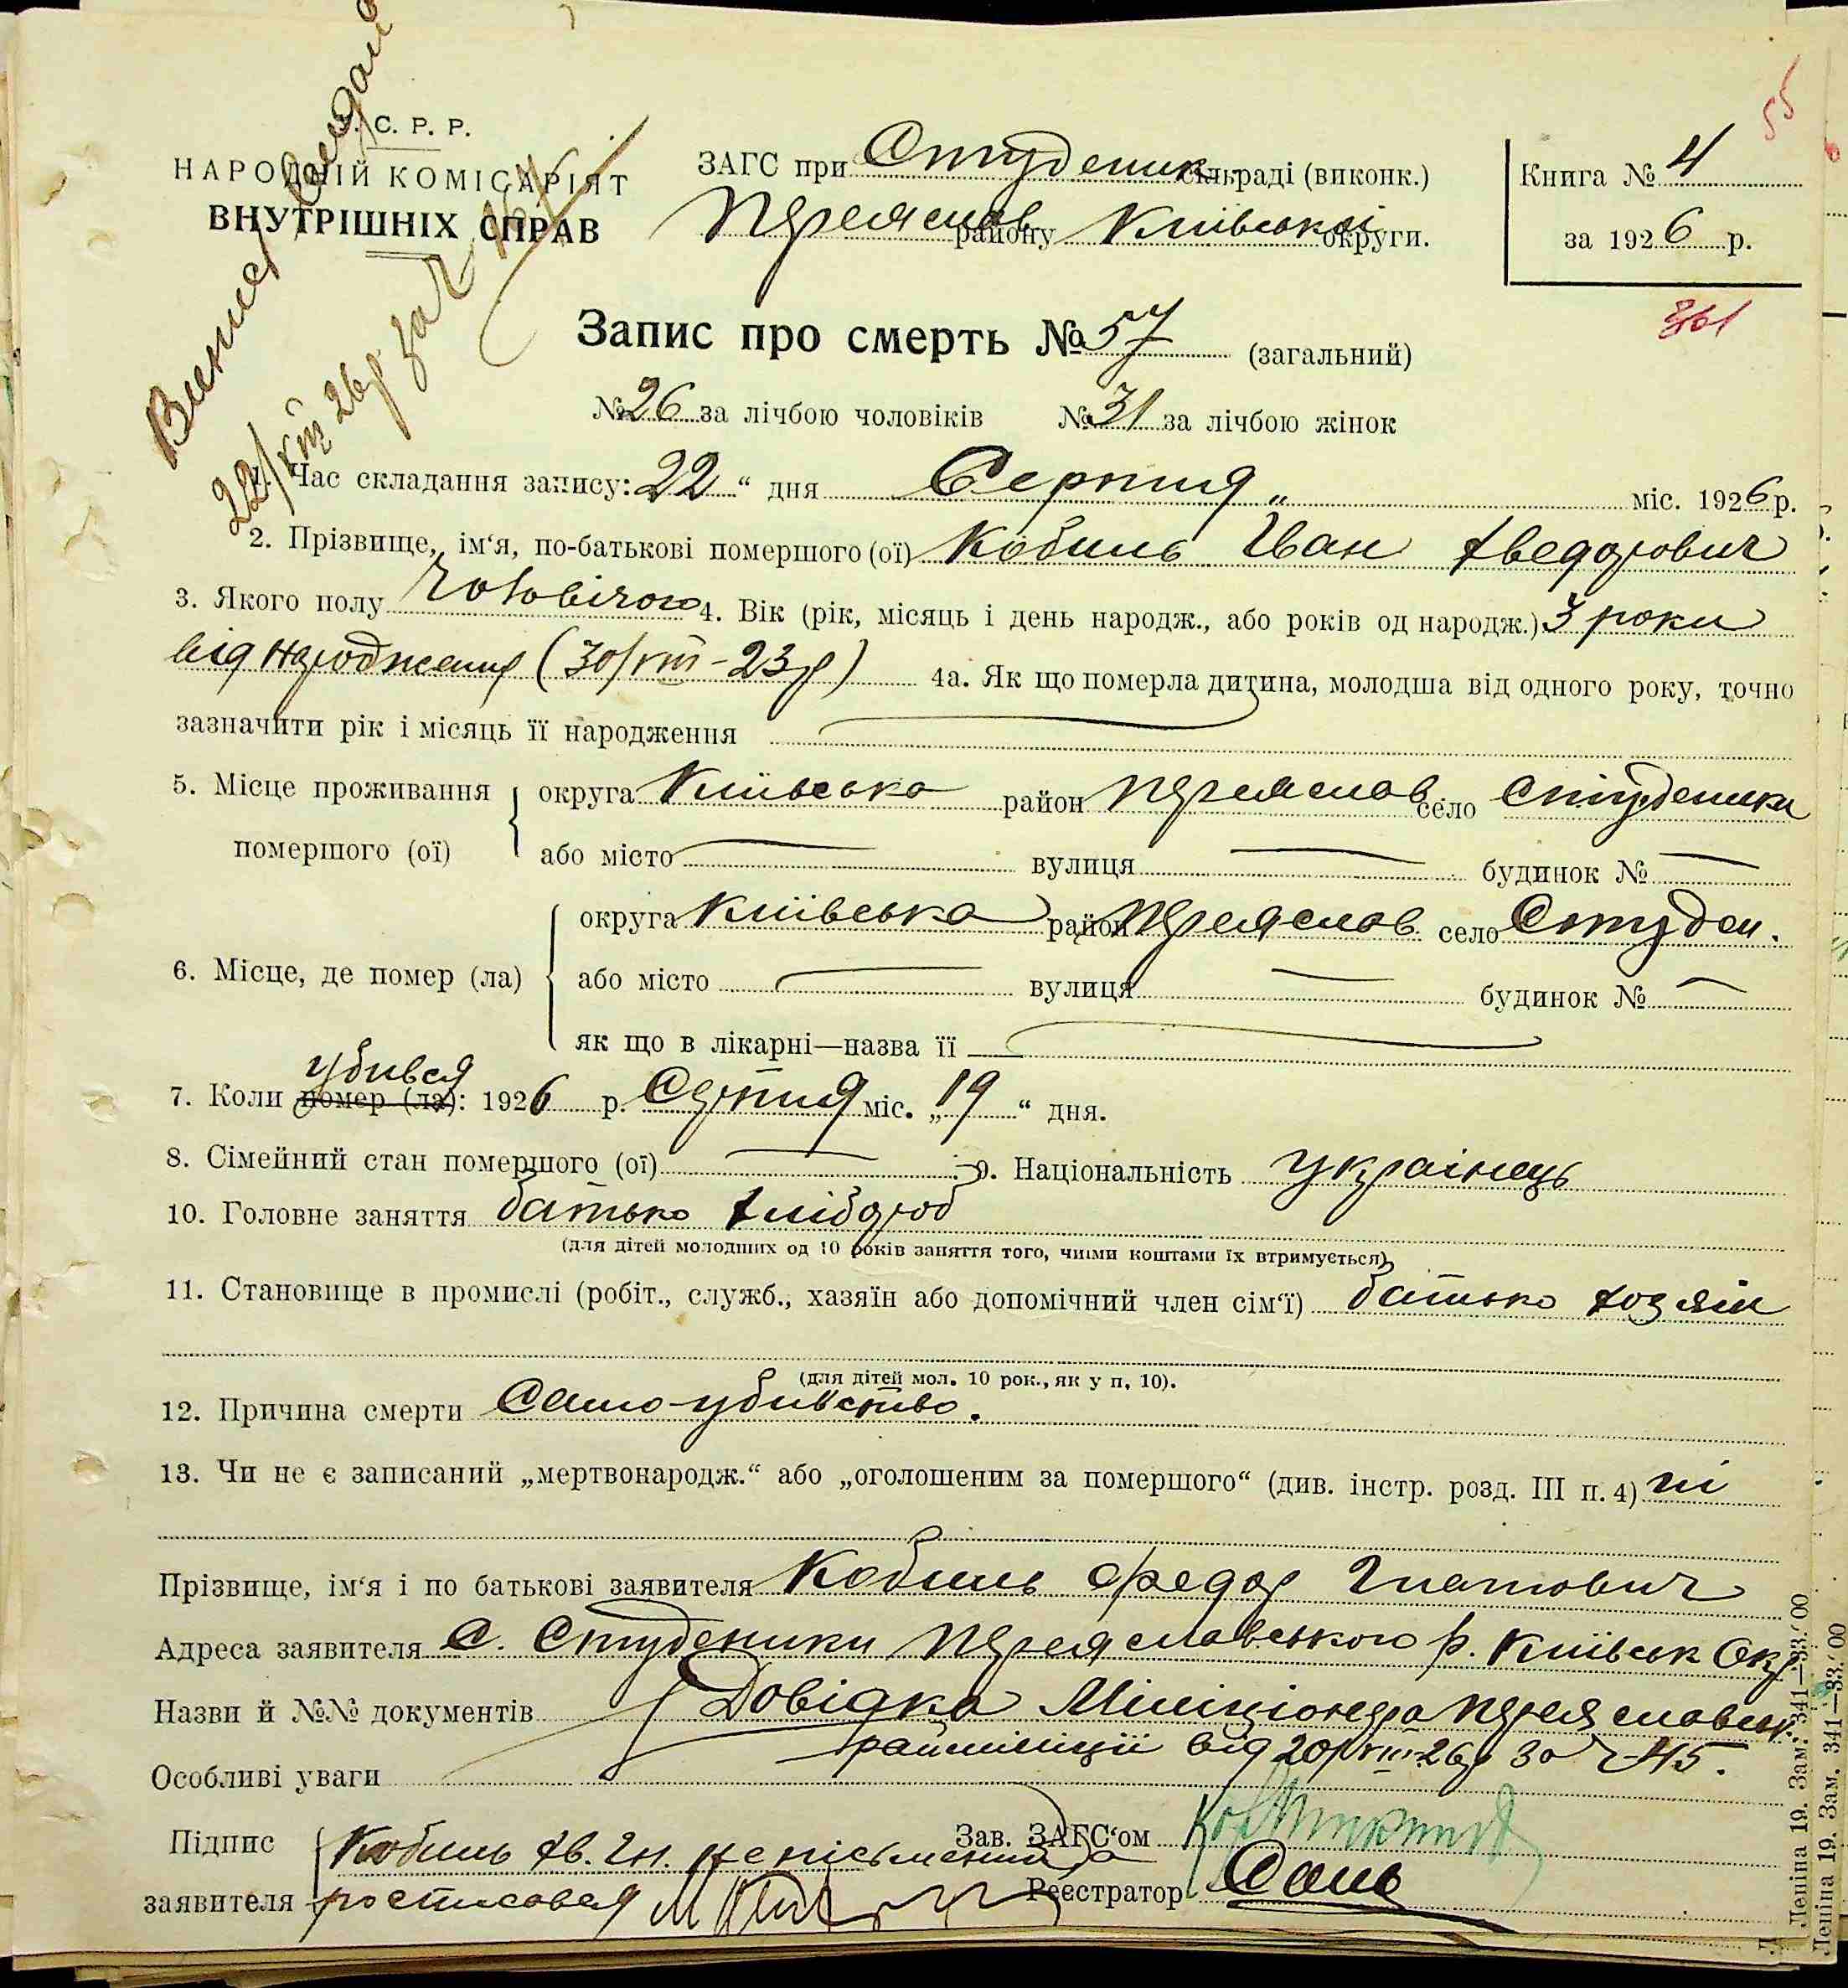 С. Р. Р.
НАРОДНІЙ КОМІСАРІЯТ
ВНУТРІШНІХ СПРАВ
ЗАГС при Студеник. сільраді (виконк.)
Переяслов району Київської округи.
Книга № 4
за 1926 р.
55
361
Випис видано
22/VIII 26 р. за ч.
Запис про смерть № 57 (загальний)
№ 26 за лічбою чоловіків № 31 за лічбою жінок
Час складання запису: 22 “ дня Серпня „ міс. 1926 р.
2. Прізвище, ім‘я, по-батькові помершого (ої) Кобиль Іван Хведорович
3. Якого полу Чоловічого 4. Вік (рік, місяць і день народж., або років од народж.) 3 роки
від народження (30/VIII - 23 р) 4а. Як що померла дитина, молодша від одного року, точно
зазначити рік і місяць її народження
5. Місце проживання помершого (ої) округа Київська район Переяслов. село Студеники
або місто — вулиця — будинок № —
6. Місце, де помер (ла) округа Київська район Переяслов. село Студен.
або місто — вулиця — будинок № —
як що в лікарні—назва її —
убився
7. Коли помер (ла): 1926 р. Серпня міс. „19“ дня.
8. Сімейний стан помершого (ої) — 9. Національність українець
10. Головне заняття батько хлібороб
(для дітей молодших од 10 років заняття того, чиїми коштами їх втримується)
11. Становище в промислі (робіт., служб., хазяїн або допомічний член сім‘ї) батько хозяін
(для дітей мол. 10 рок., як у п. 10).
12. Причина смерти Само-убивство.
13. Чи не є записаний „мертвонародж.“ або „оголошеним за помершого“ (див. інстр. розд. III п. 4) ні
Прізвище, ім‘я і по батькові заявителя Кобиль Федор Гнатович
Адреса заявителя С. Студеники Переяславського р. Київськ Окр.
Назви й №№ документів Довідка Міліціонера Переяславськ.
Особливі уваги райміліції від 20/VIII-26 р за ч 45.
Підпис заявителя Кобиль Хв. Гн. неписьменний за
росписовся
Зав. ЗАГС‘ом
Реєстратор
Леніна 19. Зам. 341—33.‘00
Леніна 19. Зам. 341—33.‘00